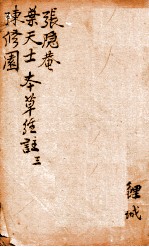 張隱庵
葉天士 本草經註 三
陳修園
鯉城